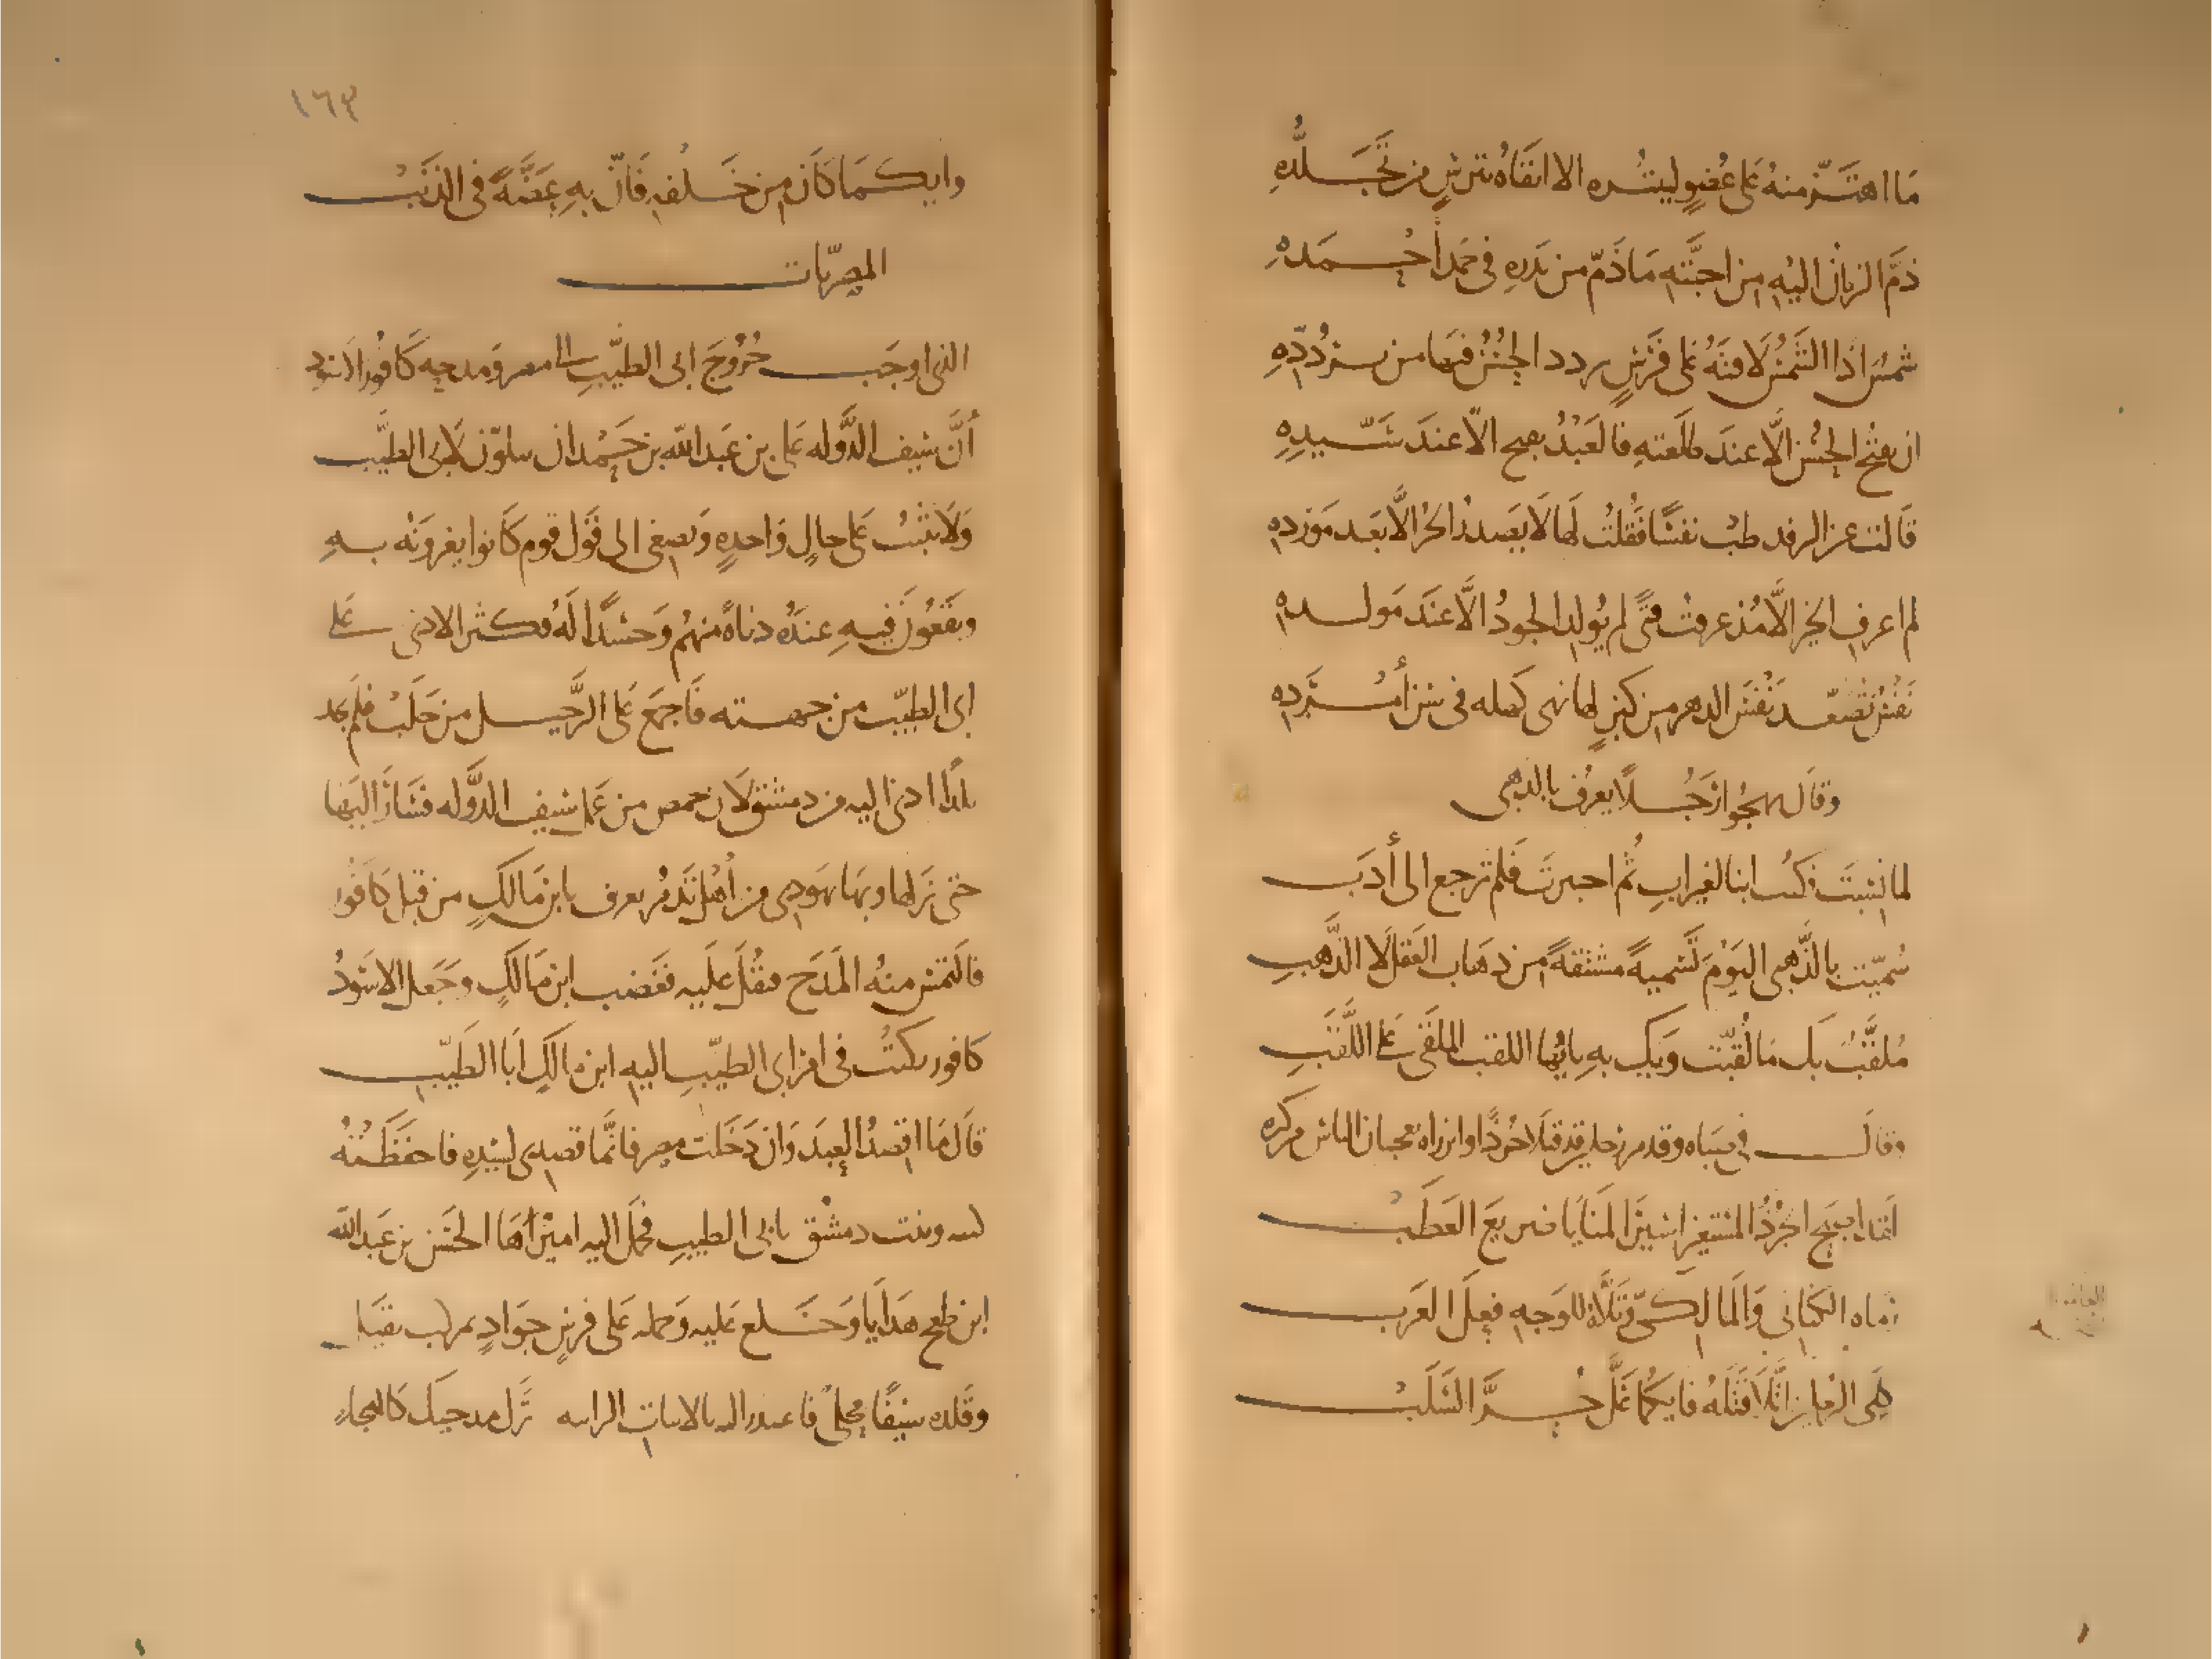 ما اهتز منه على عضو ليبتره الا اتقاه بترس من تجلده
ذم الزمان اليه من احبته ما ذم من بدره في حمد احمده
شمس اذا الشمس لاقته على فرس تردد الحسن فيها من تردده
ان يقبح الحسن الا عند طلعته فالعبد يقبح الا عند سيده
قالت عن الرفد طب نفسا فقلت لها لا يصدر الحر الا بعد مورده
لم اعرف الخير الا مذ عرفت فتى لم يولد الجود الا عند مولده
نفس تصغر نفس الدهر من كبر لها نهى كهله في سن أمرده
وقال يهجو ارجلا يعرف بالذهبي
لما نسبت فكنت ابنا لغير اب ثم اختبرت فلم ترجع الى أدب
سميت بالذهبي اليوم تسمية مشتقة من ذهاب العقل لا الذهب
ملقب بك ما لقبت ويك به يا ايها اللقب الملقى على اللقب
وقال في صباه وقد مر برجلين قد قتلا جرذا وابرزاه يعجبان الناس من كبره
لقد اصبح الجرذ المستغير اسير المنايا صريع العطب
رماه الكناني والعامري وتلاه للوجه فعل العرب
كلى الرجلين اتلا قتله فايكما غل حر السلب
١٦٣
وايكما كان من خلفه فان به عضة في الذنب
المصريات
الذي اوجب خروج ابي الطيب الى مصر ومدحه كافور الاسود
أن سيف الدولة على بن عبد الله بن حمدان تلون لابي الطيب
ولا يثبت على حال واحدة ويصغي الى قول قوم كانوا يغرونه به
ويقعون فيه عنده دناة منهم وحسدا له فكثر الاذى على
ابي الطيب من جهته فاجمع على الرحيل من حلب فلم يجد
بلدا ادنى اليه من دمشق لان حمص من عمل سيف الدولة فسار اليها
حتى نزلها وبها يهودي من أهل تدمر يعرف بابن مالك من قبل كافور
فالتمس منه المدح فثقل عليه فغضب ابن مالك وجعل الاسود
كافور يكتب في امر ابي الطيب اليه ابن مالك ابا الطيب
قال ما اقصد العبد وان دخلت مصر فانما قصدي لسيده فاحفظته
ونبت دمشق بابي الطيب فحمل اليه اميرها الحسن بن عبد الله
ابن طغج هدايا وخلع عليه وحمله على فرس جواد بمركب ثقيل
وقلده سيفا محلى فاعتذر اليه بالابيات الرائيه ترك مدحيك كالهجاء